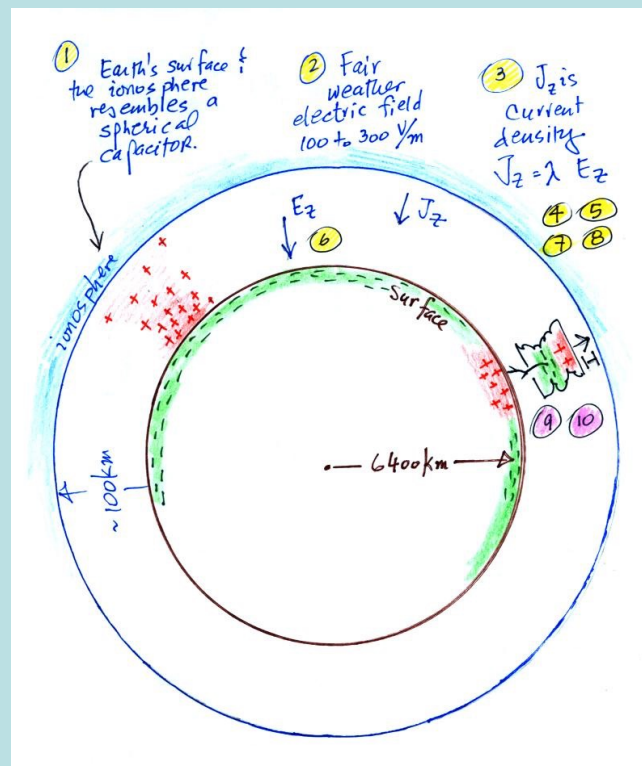 1 Earth's surface &
the ionosphere
resembles a
spherical
capacitor.
2 Fair
weather
electric field
100 to 300 V/m
3 Jz is
current
density
Jz = λ Ez
4 5
7 8
Ez
6
Jz
ionosphere
+ + + + + + + + + + + + + + + + + + + +
Surface
+ + + + + + + + + +
+ + +
I
9 10
6400km
~100km